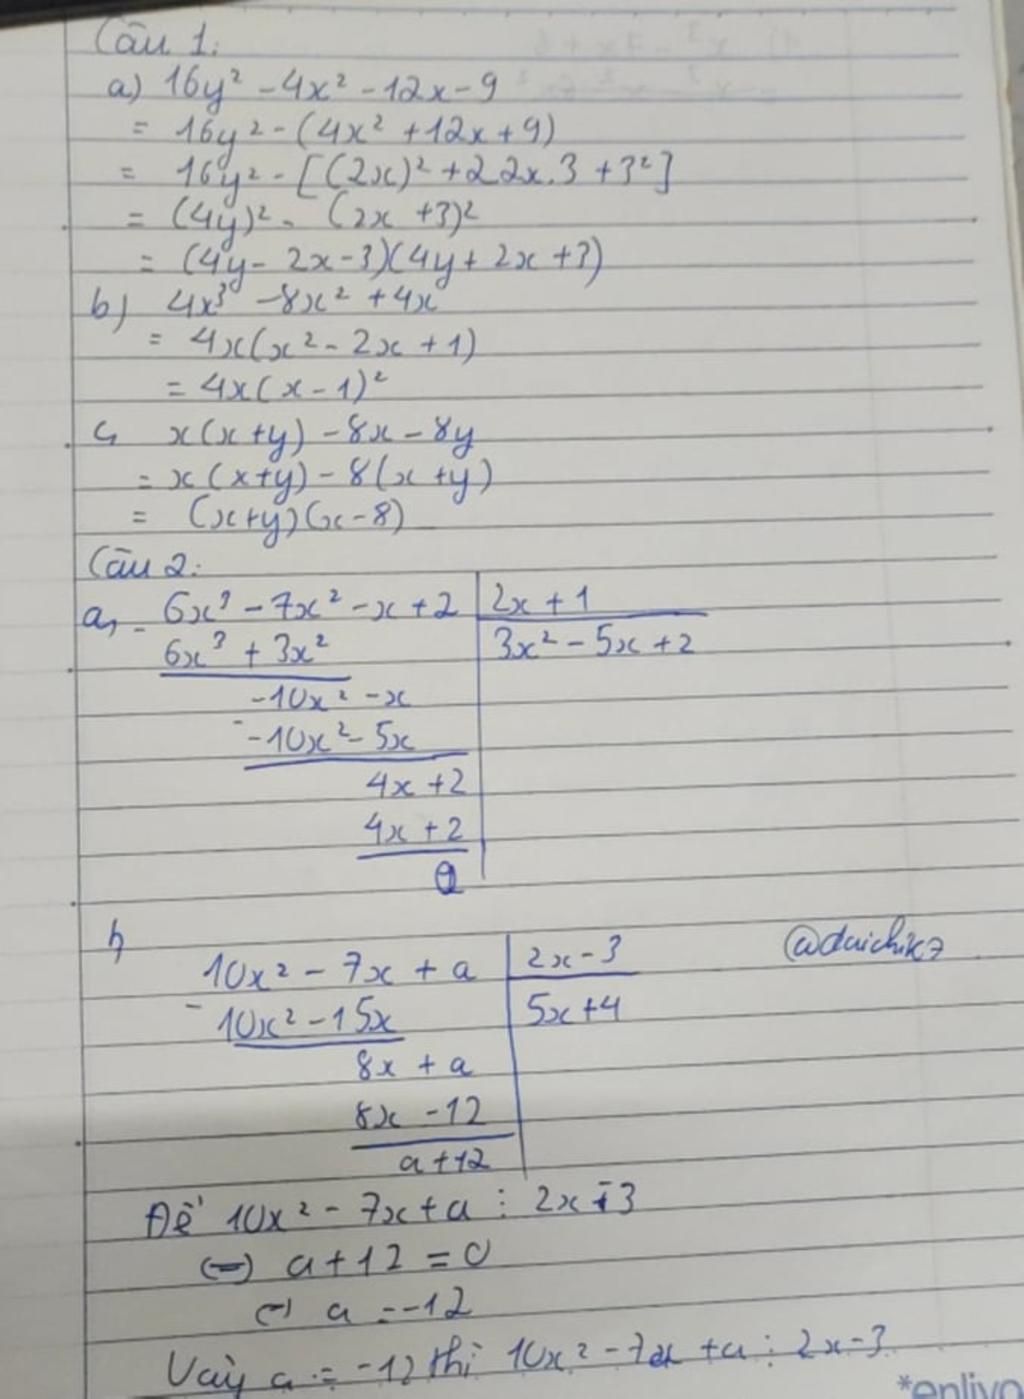 Câu 1:
a) 16y² - 4x² - 12x - 9
= 16y² - (4x² + 12x + 9)
= 16y² - [(2x)² + 2.2x.3 + 3²]
= (4y)² - (2x + 3)²
= (4y - 2x - 3)(4y + 2x + 3)
b) 4x³ - 8x² + 4x
= 4x(x² - 2x + 1)
= 4x(x - 1)²
c, x(x+y) - 8x - 8y
= x(x+y) - 8(x+y)
= (x+y)(x-8)
Câu 2:
a, 6x³ - 7x² - x + 2 | 2x + 1
- 6x³ + 3x² | 3x² - 5x + 2
-10x² - x
- -10x² - 5x
4x + 2
4x + 2
0
b,
10x² - 7x + a | 2x - 3
- 10x² - 15x | 5x + 4
@daichik7
8x + a
8x - 12
a + 12
Để 10x² - 7x + a ⋮ 2x - 3
(=) a + 12 = 0
(=) a = -12
Vậy a = -12 thì 10x² - 7x + a ⋮ 2x - 3